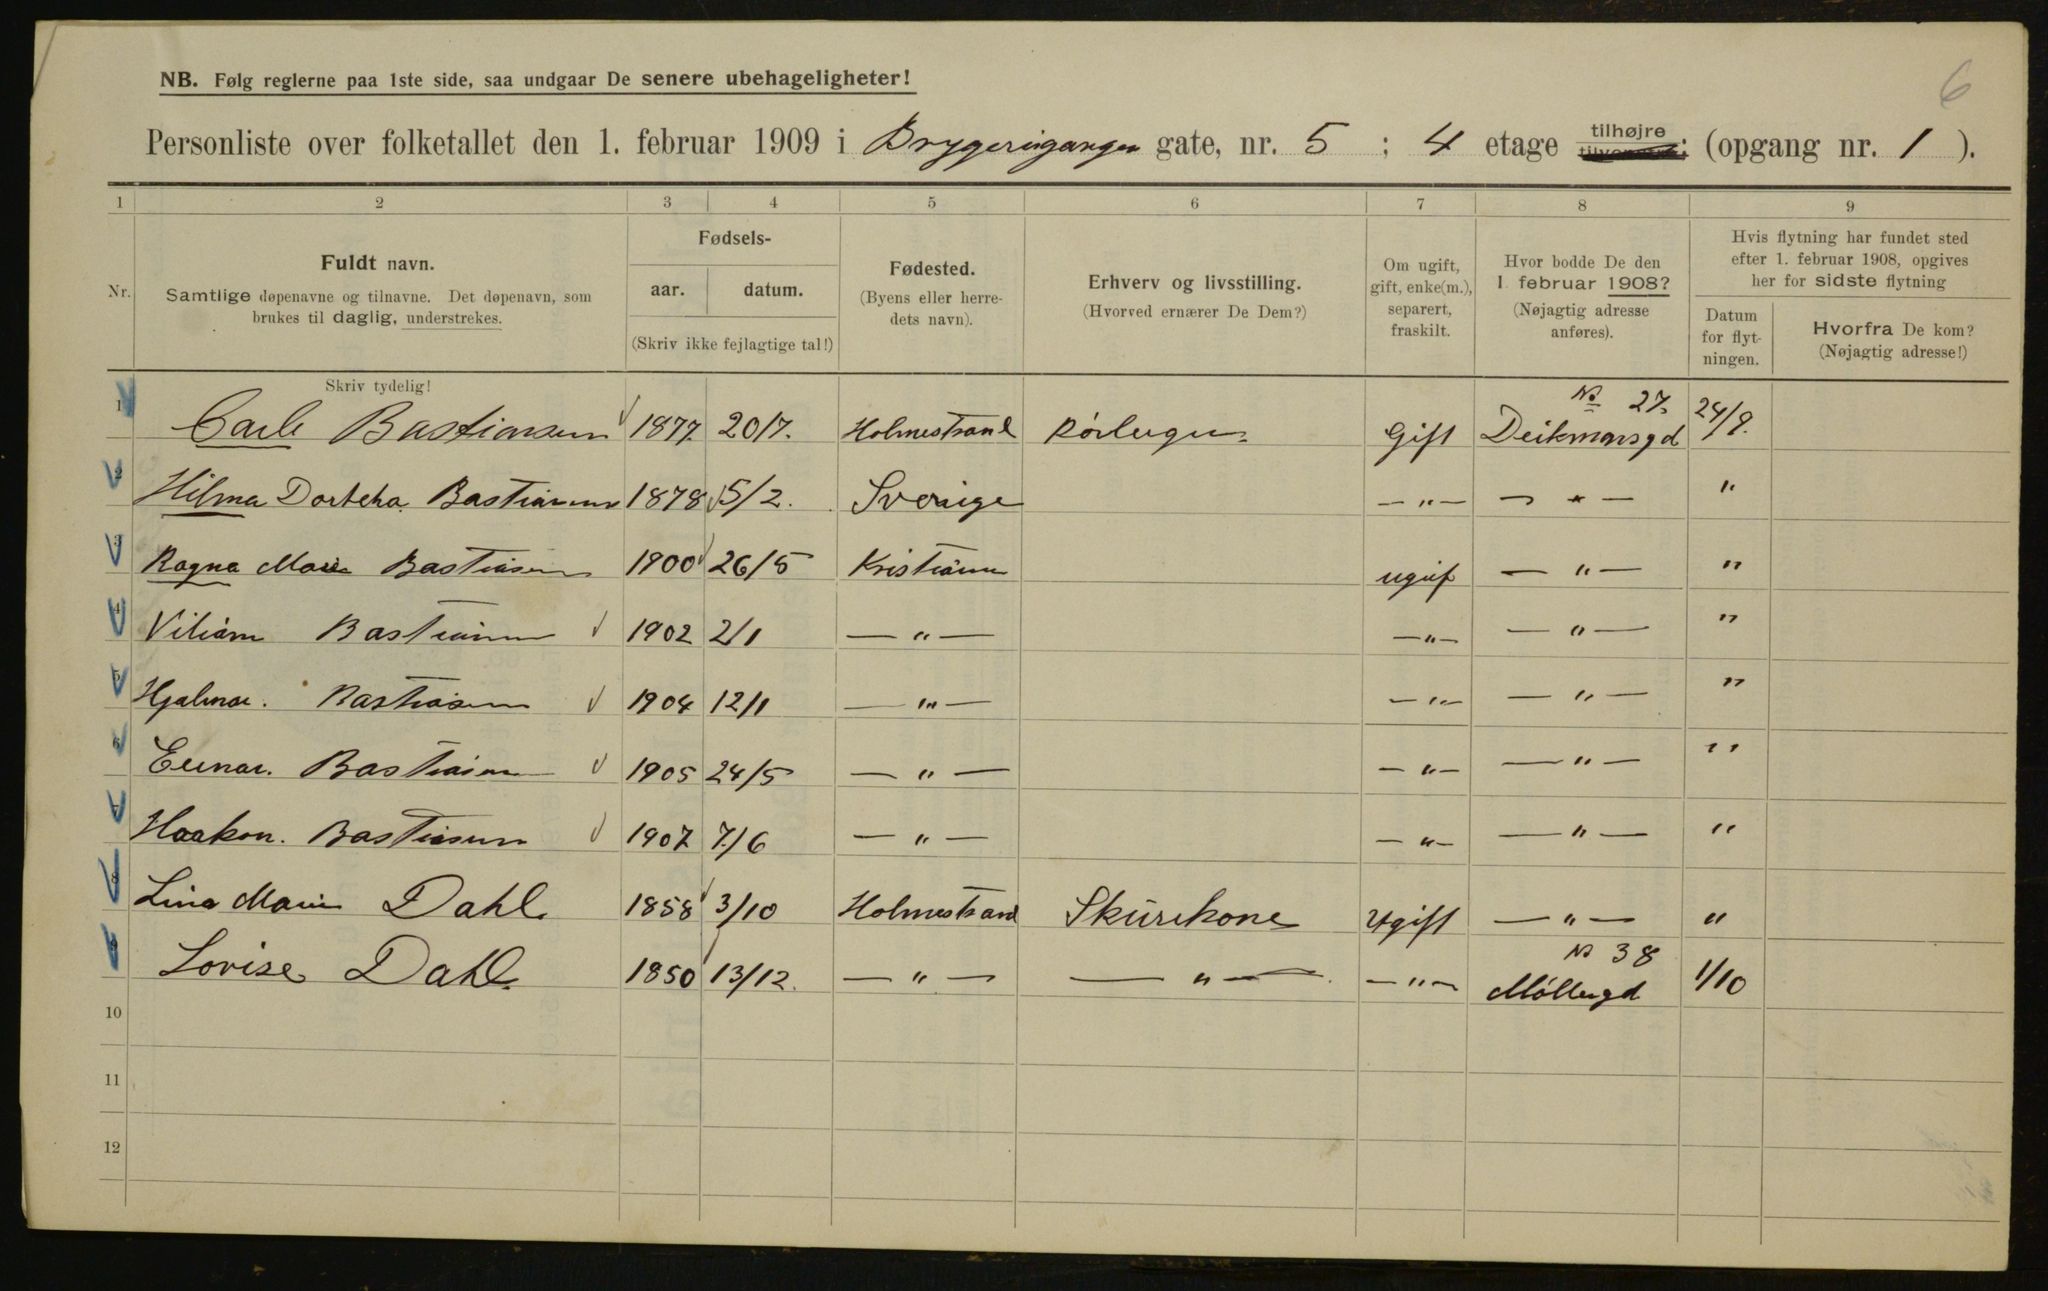 6
NB. Følg reglerne paa 1ste side, saa undgaar De senere ubehageligheter!
Personliste over folketallet den 1. februar 1909 i Brygerigangen gate, nr. 5 ; 4 etage tilhøjre tilvenstre; (opgang nr. 1 ).
1 2 3 4 5 6 7 8 9
Nr.
Fuldt navn.
Samtlige døpenavne og tilnavne. Det døpenavn, som
brukes til daglig, understrekes.
Skriv tydelig!
Fødsels-
aar. datum.
(Skriv ikke fejlagtige tal!)
Fødested.
(Byens eller herre-
dets navn).
Erhverv og livsstilling.
(Hvorved ernærer De Dem?)
Om ugift,
gift, enke(m.),
separert,
fraskilt.
Hvor bodde De den
1. februar 1908?
(Nøjagtig adresse
anføres).
Hvis flytning har fundet sted
efter 1. februar 1908, opgives
her for sidste flytning
Datum
for flyt-
ningen.
Hvorfra De kom?
(Nøjagtig adresse!)
No 27.
1 Carl Bastiansen 1877. 20/7. Holmestrand Rørlegger Gift Deikmansgd 24/9.
2 Hilma Dorteha Bastiansen 1878 5/2. Sverige — " — — " — "
3 Ragna Marie Bastiansen 1900 26/5 Kristiania ugift — " — "
4 Viliam Bastiansen 1902 2/1 — " — — " — — " — "
5 Hjalmar. Bastiansen 1904 12/1 — " — — " — — " — "
6 Einar. Bastiansen 1905 24/5 — " — — " — — " — "
7 Haakon. Bastiansen 1907 7/6 — " — — " — — " — "
8 Lina Marie Dahl 1858 3/10 Holmestrand Skurekone Ugift — " — "
No 38
9 Lovise Dahl. 1850 13/12. — " — — " — — " — Møllergd 1/10
10
11
12